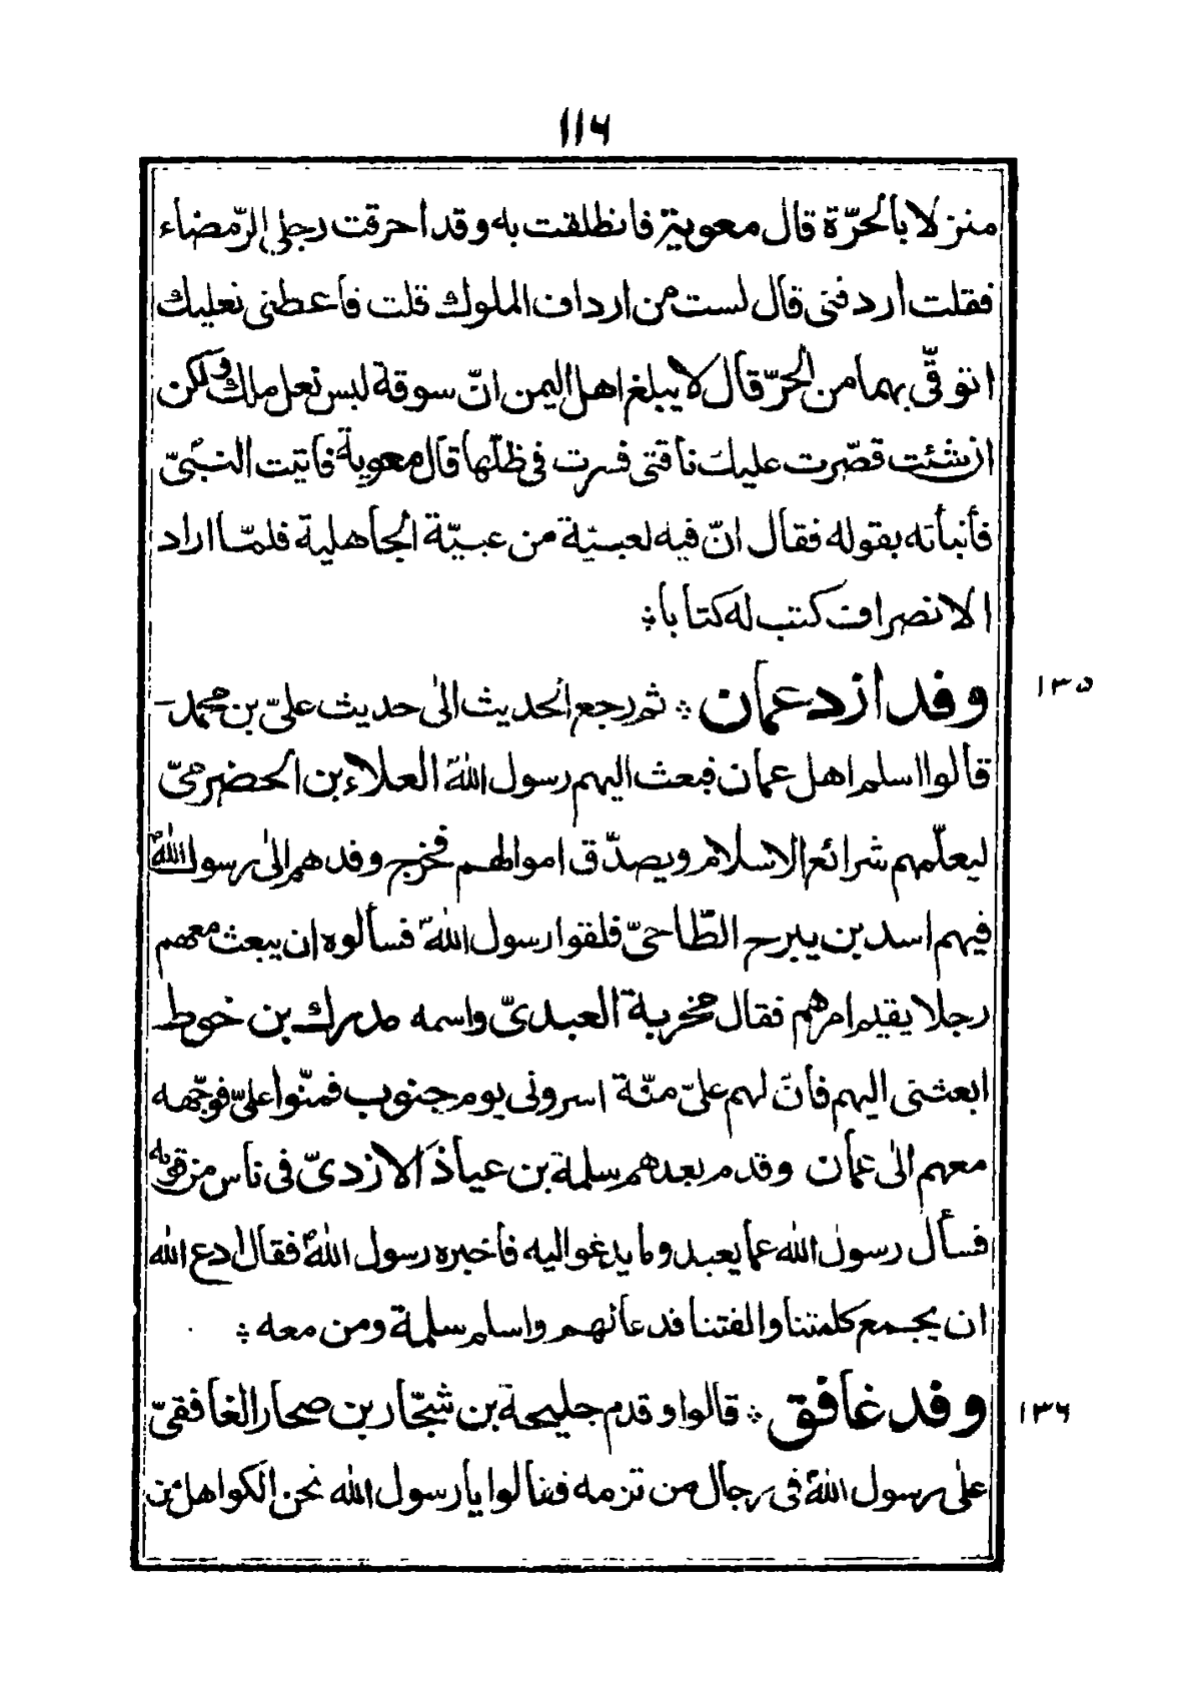 ١١٦
منزلا بالحرّة قال معوية فانطلقت به وقد احرقت رجلي الرّمضاء
فقلت اردفنى قال لست من ارداف الملوك قلت فاعطنى نعليك
اتوقّى بهما من الحرّ قال لا يبلغ اهل اليمن انّ سوقة لبس نعل ملك ولكن
ان شئت قصّرت عليك ناقتى فسرت فى ظلّها قال معوية فاتيت النبىّ
فأنبأته بقوله فقال انّ فيه لعبيّة من عبيّة الجاهلية فلمّا اراد
الانصراف كتب له كتابا ؞
١٣٥
وفد ازد عمان ؞ ثم رجع الحديث الى حديث علىّ بن محمد
قالوا اسلم اهل عمان فبعث اليهم رسول اللهؐ العلاء بن الحضرمىّ
ليعلّمهم شرائع الاسلام ويصدّق اموالهم فخرج وفدهم الى رسول اللهؐ
فيهم اسد بن يبرح الطّاحىّ فلقوا رسول اللهؐ فسألوه ان يبعث معهم
رجلا يقيم امرهم فقال مخربة العبدىّ واسمه مدرك بن خوط
ابعثنى اليهم فانّ لهم علىّ منّة اسرونى يوم جنوب فمنّوا علىّ فوجّهه
معهم الى عمان وقدم بعدهم سلمة بن عياذ الازدىّ فى ناس من قومه
فسأل رسول الله عما يعبد وما يدعو اليه فاخبره رسول اللهؐ فقال ادع الله
ان يجمع كلمتنا والفتنا فدعا لهم واسلم سلمة ومن معه ؞
١٣٦
وفد غافق ؞ قالوا وقدم جليحة بن شجّار بن صحار الغافقىّ
على رسول اللهؐ فى رجال من قومه فقالوا يا رسول الله نحن الكواهل من